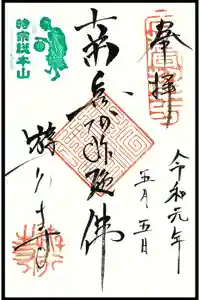 奉拝
令和元年
五月五日
南無阿弥陀佛
時宗総本山
遊行寺